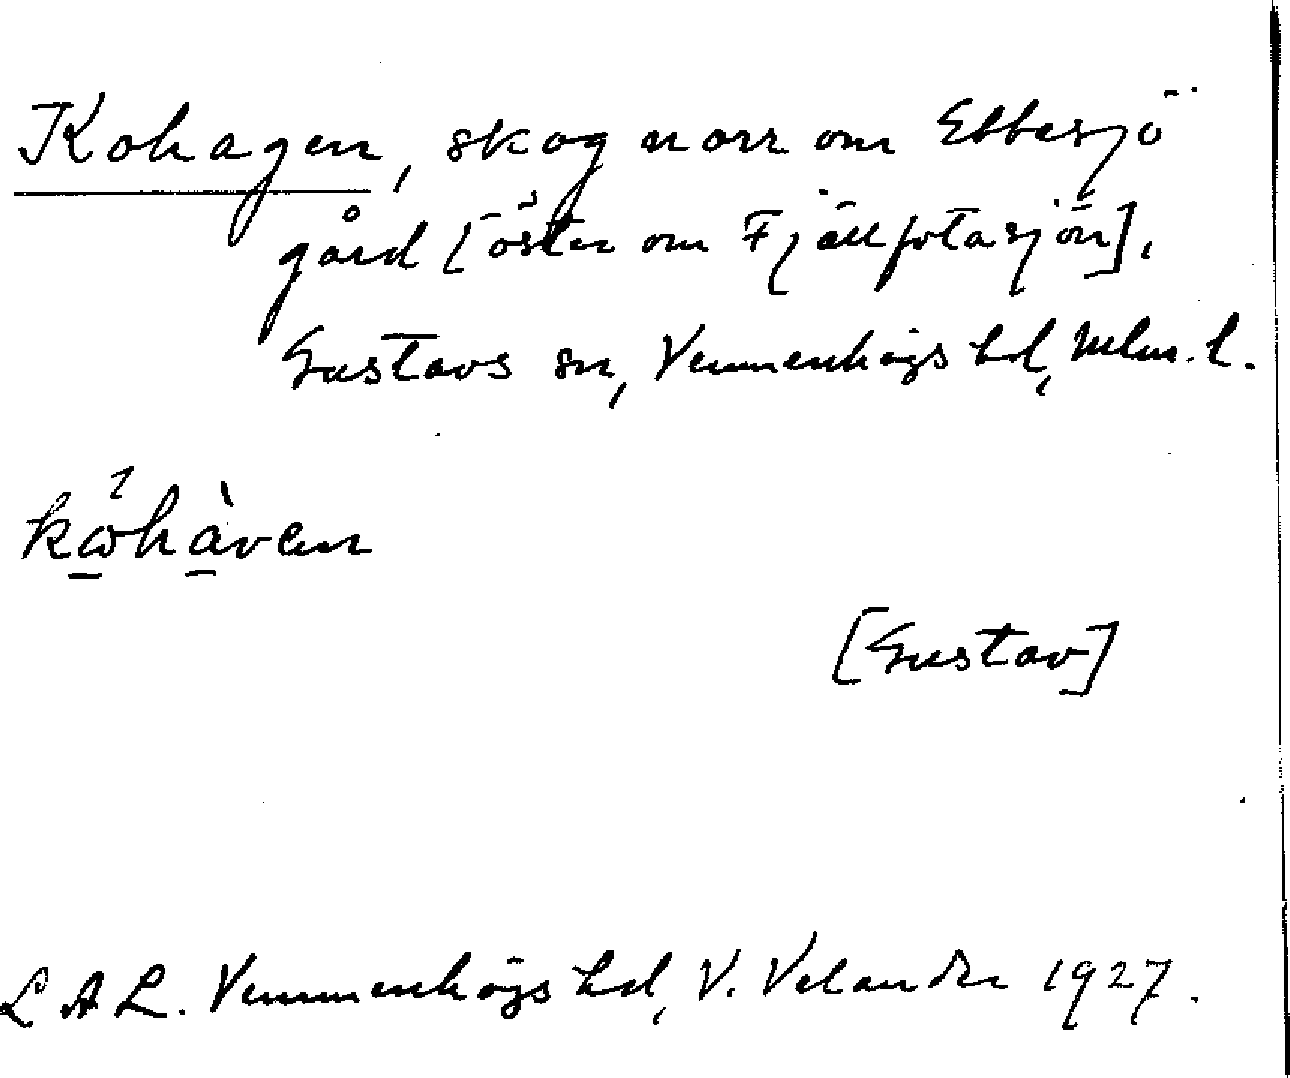 Kohagen, skog norr om Ebbesjö
gård [öster om Fjällfotasjön],
Gustavs sn, Vemmenhögs hd, Mlm. l.
kώ̱hà̱ven
[Gustav]
LAL. Vemmenhögs hd, V. Velander 1927.